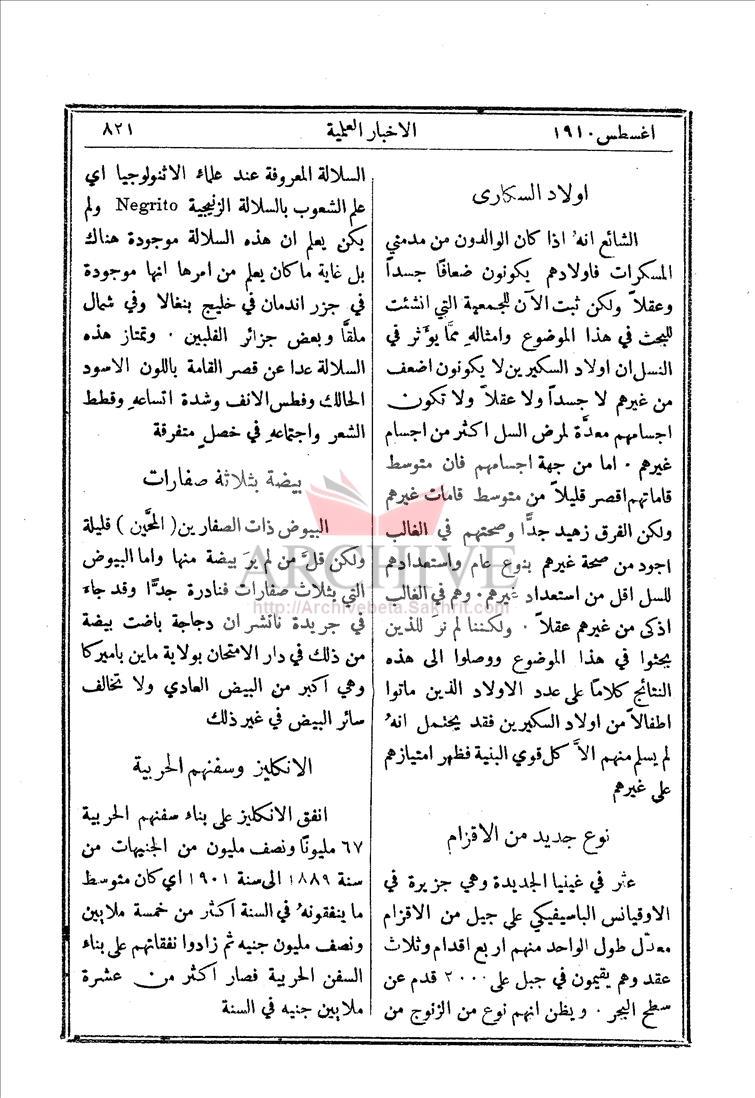 اغسطس ١٩١٠
الاخبار العلمية
٨٢١
اولاد السكارى
الشائع انهُ اذا كان الوالدون من مدمني
المسكرات فاولادهم يكونون ضعافًا جسداً
وعقلاً ولكن ثبت الآن للجمعية التي انشئت
للبحث في هذا الموضوع وامثالهِ ممَّا يؤثر في
النسل ان اولاد السكيرين لا يكونون اضعف
من غيرهم لا جسداً ولا عقلاً ولا تكون
اجسامهم معدَّة لمرض السل اكثر من اجسام
غيرهم . اما من جهة اجسامهم فان متوسط
قاماتهم اقصر قليلاً من متوسط قامات غيرهم
ولكن الفرق زهيد جدًّا وصحتهم في الغالب
اجود من صحة غيرهم بنوع عام واستعدادهم
للسل اقل من استعداد غيرهم . وهم في الغالب
اذكى من غيرهم عقلاً . ولكننا لم نرَ للذين
بحثوا في هذا الموضوع ووصلوا الى هذه
النتائج كلامًا على عدد الاولاد الذين ماتوا
اطفالاً من اولاد السكيرين فقد يحتمل انهُ
لم يسلم منهم الاَّ كل قوي البنية فظهر امتيازهم
على غيرهم
نوع جديد من الاقزام
عثر في غينيا الجديدة وهي جزيرة في
الاوقيانس الباسيفيكي على جيل من الاقزام
معدَّل طول الواحد منهم اربع اقدام وثلاث
عقد وهم يقيمون في جبل على ٢٠٠٠ قدم عن
سطح البحر . ويظن انهم نوع من الزنوج من
السلالة المعروفة عند علماء الاثنولوجيا اي
علم الشعوب بالسلالة الزنيجية Negrito ولم
يكن يعلم ان هذه السلالة موجودة هناك
بل غاية ما كان يعلم من امرها انها موجودة
في جزر اندمان في خليج بنغالا وفي شمال
ملقَّا وبعض جزائر الفلبين . وتمتاز هذه
السلالة عدا عن قصر القامة باللون الاسود
الحالك وفطس الانف وشدة اتساعهِ وقطط
الشعر واجتماعهِ في خصل متفرقة
بيضة بثلاثة صفارات
البيوض ذات الصفارين ( المحَّين ) قليلة
ولكن قلَّ من لم يرَ بيضة منها واما البيوض
التي بثلاث صفارات فنادرة جدًّا وقد جاء
في جريدة ناتشر ان دجاجة باضت بيضة
من ذلك في دار الامتحان بولاية ماين باميركا
وهي اكبر من البيض العادي ولا تخالف
سائر البيض في غير ذلك
الانكليز وسفنهم الحربية
انفق الانكليز على بناء سفنهم الحربية
٦٧ مليونًا ونصف مليون من الجنيهات من
سنة ١٨٨٩ الى سنة ١٩٠١ اي كان متوسط
ما ينفقونهُ في السنة اكثر من خمسة ملايين
ونصف مليون جنيه ثم زادوا نفقاتهم على بناء
السفن الحربية فصار اكثر من عشرة
ملايين جنيه في السنة
ARCHIVE
http://Archivebeta.Sakhrit.com